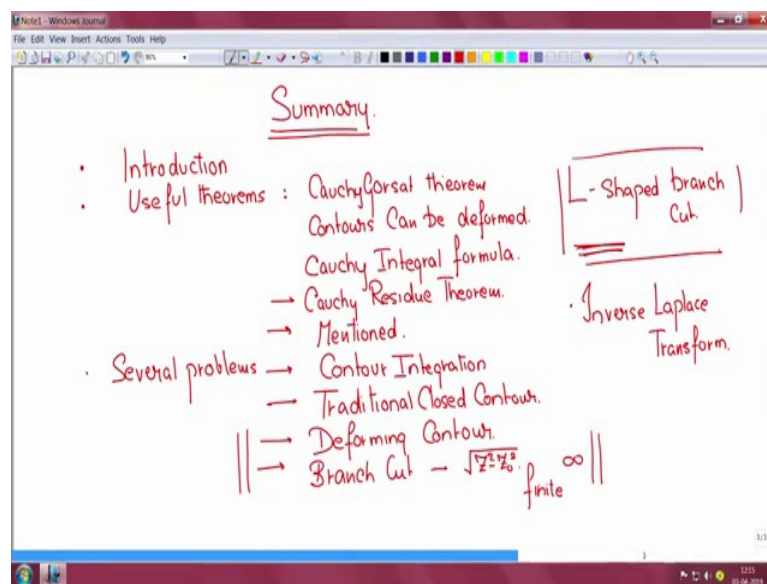 Note1 - Windows Journal
File Edit View Insert Actions Tools Help
Summary.
· Introduction
· Useful theorems : Cauchy Gorsat theorem
Contours Can be deformed.
Cauchy Integral formula.
→ Cauchy Residue Theorem.
→ Mentioned.
· Several problems → Contour Integration
— Traditional Closed Contour.
→ Deforming Contour.
→ Branch Cut — √z²-z₀² finite ∞
L-Shaped branch
Cut.
· Inverse Laplace
Transform.
3/3
3
12:15
03-04-2019